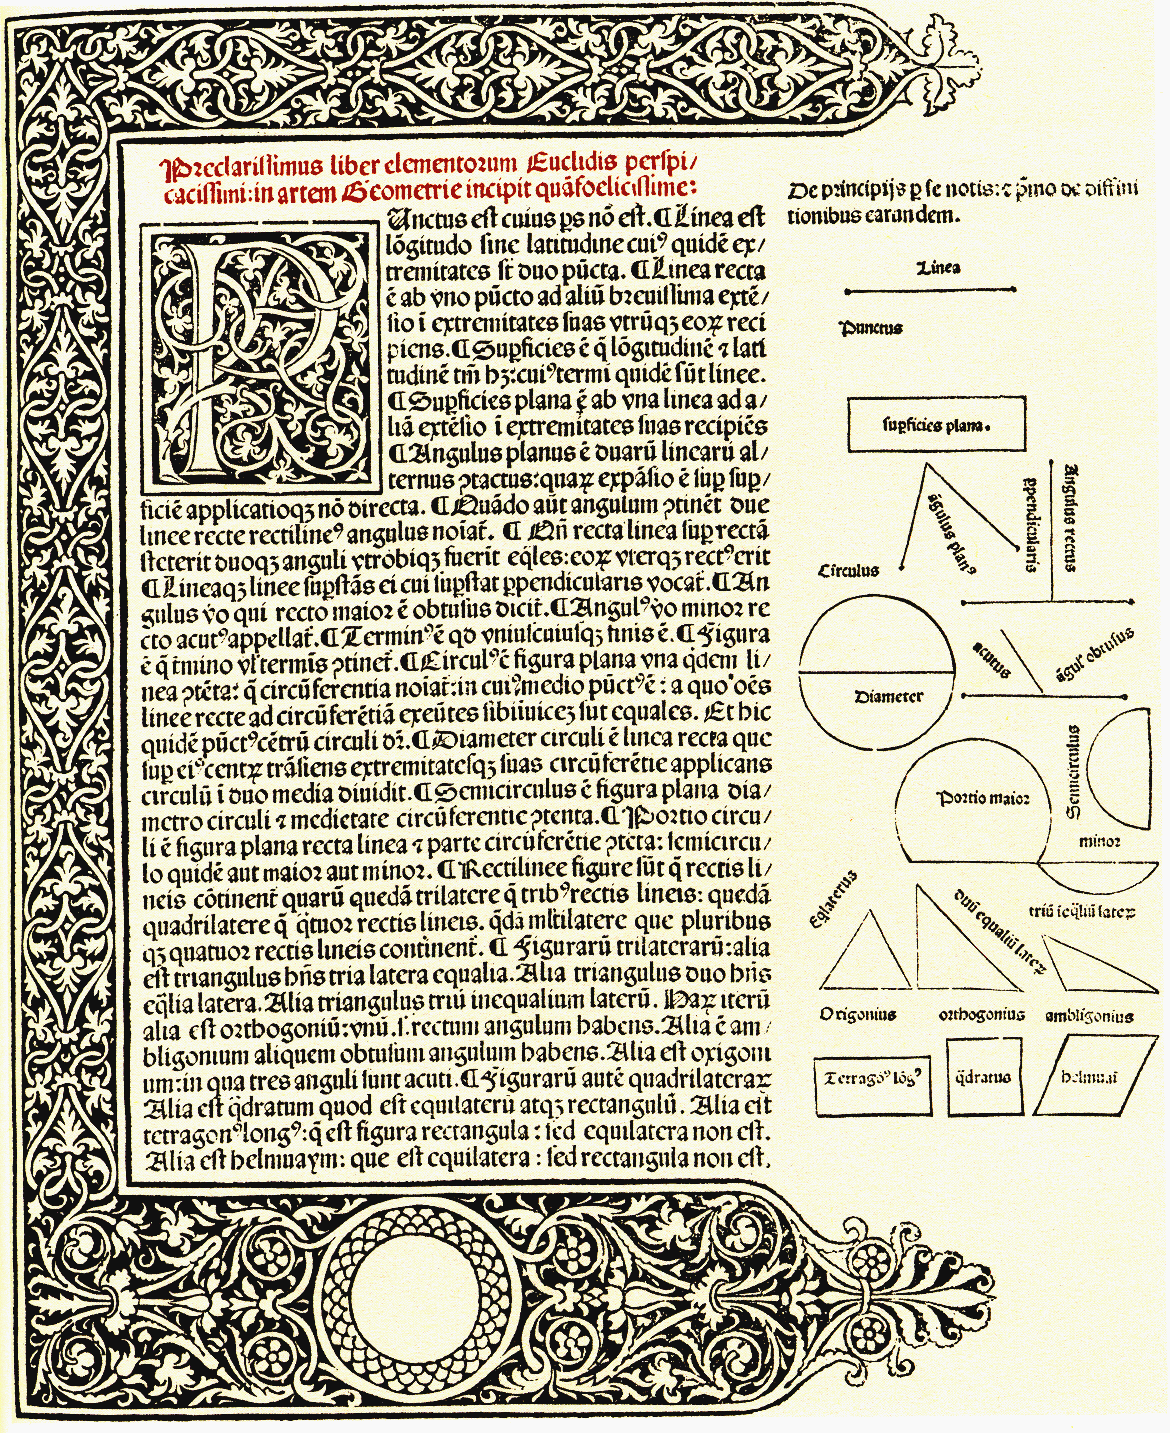 Preclarissimus liber elementorum Euclidis perspi/
cacissimi: in artem Geometrie incipit quãfoelicissime:
Unctus est cuius ps nõ est. ¶ Linea est
lõgitudo sine latitudine cuiꝰ quidẽ ex/
tremitates st̃ duo pũcta. ¶ Linea recta
ẽ ab vno pũcto ad aliũ breuissima extẽ/
sio ĩ extremitates suas vtrũqꝫ eoꝝ reci
piens. ¶ Supficies ẽ q̃ lõgitudinẽ ⁊ lati
tudinẽ tm̃ hꝫ: cuiꝰ termi quidẽ sũt linee.
¶ Supficies plana ẽ ab vna linea ad a/
liã extẽsio ĩ extremitates suas recipiẽs
¶ Angulus planus ẽ duarũ linearũ al/
ternus ꝯtactus: quaꝝ expãsio ẽ sup sup/
ficiẽ applicatioqꝫ nõ directa. ¶ Quãdo aũt angulum ꝯtinẽt due
linee recte rectilineꝰ angulus noĩat̃. ¶ Qñ recta linea sup rectã
steterit duoqꝫ anguli vtrobiqꝫ fuerit̃ eq̃les: eoꝝ vterqꝫ rectꝰ erit
¶ Lineaqꝫ linee supstãs ei cui supstat ꝑpendicularis vocat̃. ¶ An
gulus ṽo qui recto maior ẽ obtusus dicit̃. ¶ Angulꝰ ṽo minor re
cto acutꝰ appellat̃. ¶ Terminꝰ ẽ qd vniuscuiusqꝫ finis ẽ. ¶ Figura
ẽ q̃ t̃mino vl̓ termis̃ ꝯtinet̃. ¶ Circulꝰ ẽ figura plana vna q̃dem li/
nea ꝯtẽta: q̃ circũferentia noĩat̃: in cuiꝰ medio pũctꝰ ẽ: a quo oẽs
linee recte ad circũferẽtiã exeũtes sibiĩuiceꝫ sũt equales. Et hic
quidẽ pũctꝰ cẽtrũ circuli dr̃. ¶ Diameter circuli ẽ linea recta que
sup eiꝰ centꝝ trãsiens extremitatesqꝫ suas circũferẽtie applicans
circulũ ĩ duo media diuidit. ¶ Semicirculus ẽ figura plana dia/
metro circuli ⁊ medietate circũferentie ꝯtenta. ¶ Portio circu/
li ẽ figura plana recta linea ⁊ parte circũferẽtie ꝯtẽta: semicircu/
lo quidẽ aut maior aut minor. ¶ Rectilinee figure sũt q̃ rectis li/
neis cõtinent̃ quarũ quedã trilatere q̃ tribꝰ rectis lineis: quedã
quadrilatere q̃ q̃tuor rectis lineis. q̃dã mltilatere que pluribus
qꝫ quatuor rectis lineis continent̃. ¶ Figurarũ trilaterarũ: alia
est triangulus hñs tria latera equalia. Alia triangulus duo hñs
eq̃lia latera. Alia triangulus triũ inequalium laterũ. Haꝝ iterũ
alia est orthogoniũ: vnũ .s. rectum angulum habens. Alia ẽ am/
bligonium aliquem obtusum angulum habens. Alia est oxigoni
um: in qua tres anguli sunt acuti. ¶ Figurarũ autẽ quadrilateraꝝ
Alia est q̃dratum quod est equilaterũ atqꝫ rectangulũ. Alia est
tetragonꝰ longꝰ: q̃ est figura rectangula: sed equilatera non est.
Alia est helmuaym: que est equilatera: sed rectangula non est.
De principijs ꝑ se notis: ⁊ p̃mo de diffini
tionibus earundem.
Linea
Punctus
supficies plana.
ãgulus planꝰ
ꝑpendicularis
Angulus rectus
Circulus
Diameter
acutus
ãgul̓ obtusus
Portio maior
Semicirculus
minor
Eq̃laterus
duũ equaliũ lateꝝ
triũ ieq̃liũ lateꝝ
Origonius
orthogonius
ambligonius
Tetragoꝰ lõgꝰ
q̃dratus
helmuaĩ